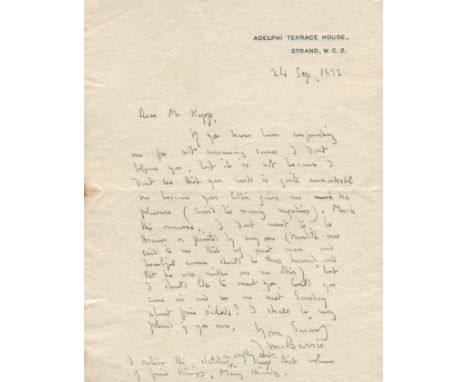 ADELPHI TERRACE HOUSE,
STRAND, W.C.2.
24 Sep. 1922
Dear Mr Kapp,
If you have been
me for not answering sooner I don't
blame you, but it is not because I
don't see that your work is quite remarkable
nor because your letter gives me no
pleasure (amid its many mysteries). Much
the reverse. I don't want to be
drawn or painted by any one (Meredith once
said to me that great men and
beautiful women should be thus honored and
that he was neither one nor the other), but
I should like to meet you. Could you
come in and see me next Sunday
about five o'clock? I shall be very
pleased if you can.
Yours Sincerely
J M Barrie
I return the sketches, keep that volume
of fine things. Many thanks.